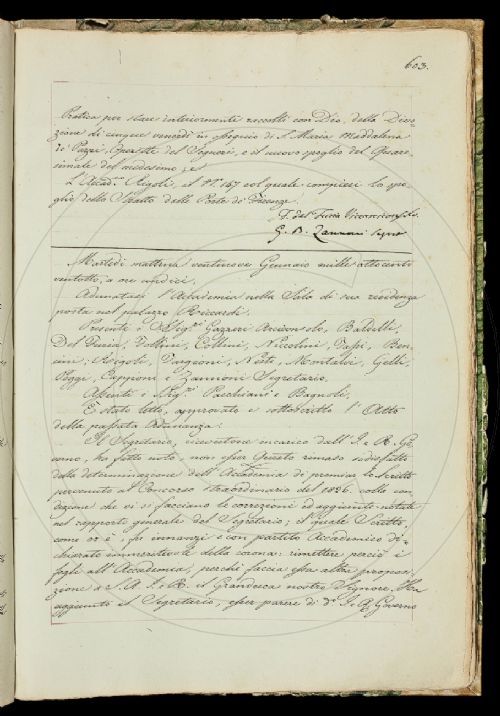 603.
Pratica per stare interiormente raccolti con Dio, della Divo-
zione di cinque venerdì in ossequio di S. Maria Maddalena
de' Pazzi, Operette del Signori, e il nuovo spoglio del Quare-
simale del medesimo; e
L'Accad. Rigoli, il N. 157 col quale compiesi lo spo-
glio dello Statto delle Porte di Firenze.
F. del Furia Vicearciconsolo
G. B. Zannoni Segret.
Martedì mattina ventinove Gennaio mille ottocento
ventotto, a ore undici.
Adunatasi l'Accademia nella Sala di sua residenza
posta nel palazzo Riccardi.
Presenti i Sigri Gazzeri Arciconsolo, Baldelli,
Del Furia, Follini, Collini, Niccolini, Papi, Ben-
cini, Rigoli, Targioni, Nesti, Montalvi, Gelli,
Poggi, Capponi e Zannoni Segretario.
Assenti i Sigri Pacchiani e Bagnoli.
È stato letto, approvato e sottoscritto l'Atto
della passata Adunanza.
Il Segretario, ricevutone incarico dall'I. e R. Go-
verno, ha fatto noto, non esser questo rimaso sodisfatto
della determinazione dell'Accademia di premiar lo Scritto
pervenuto al Concorso straordinario del 1826. colla con-
dizione che vi si facciano le correzioni ed aggiunte notate
nel rapporto generale del Segretario; il quale Scritto,
come or è, fu innanzi e con partito Accademico di-
chiarato immeritevole della corona: rimettere perciò i
fogli all'Accademia, perchè faccia essa altra proposi-
zione a S. A. I. e R. il Granduca nostro Signore. Ha
aggiunto il Segretario, esser parere di do. I. e R. Governo